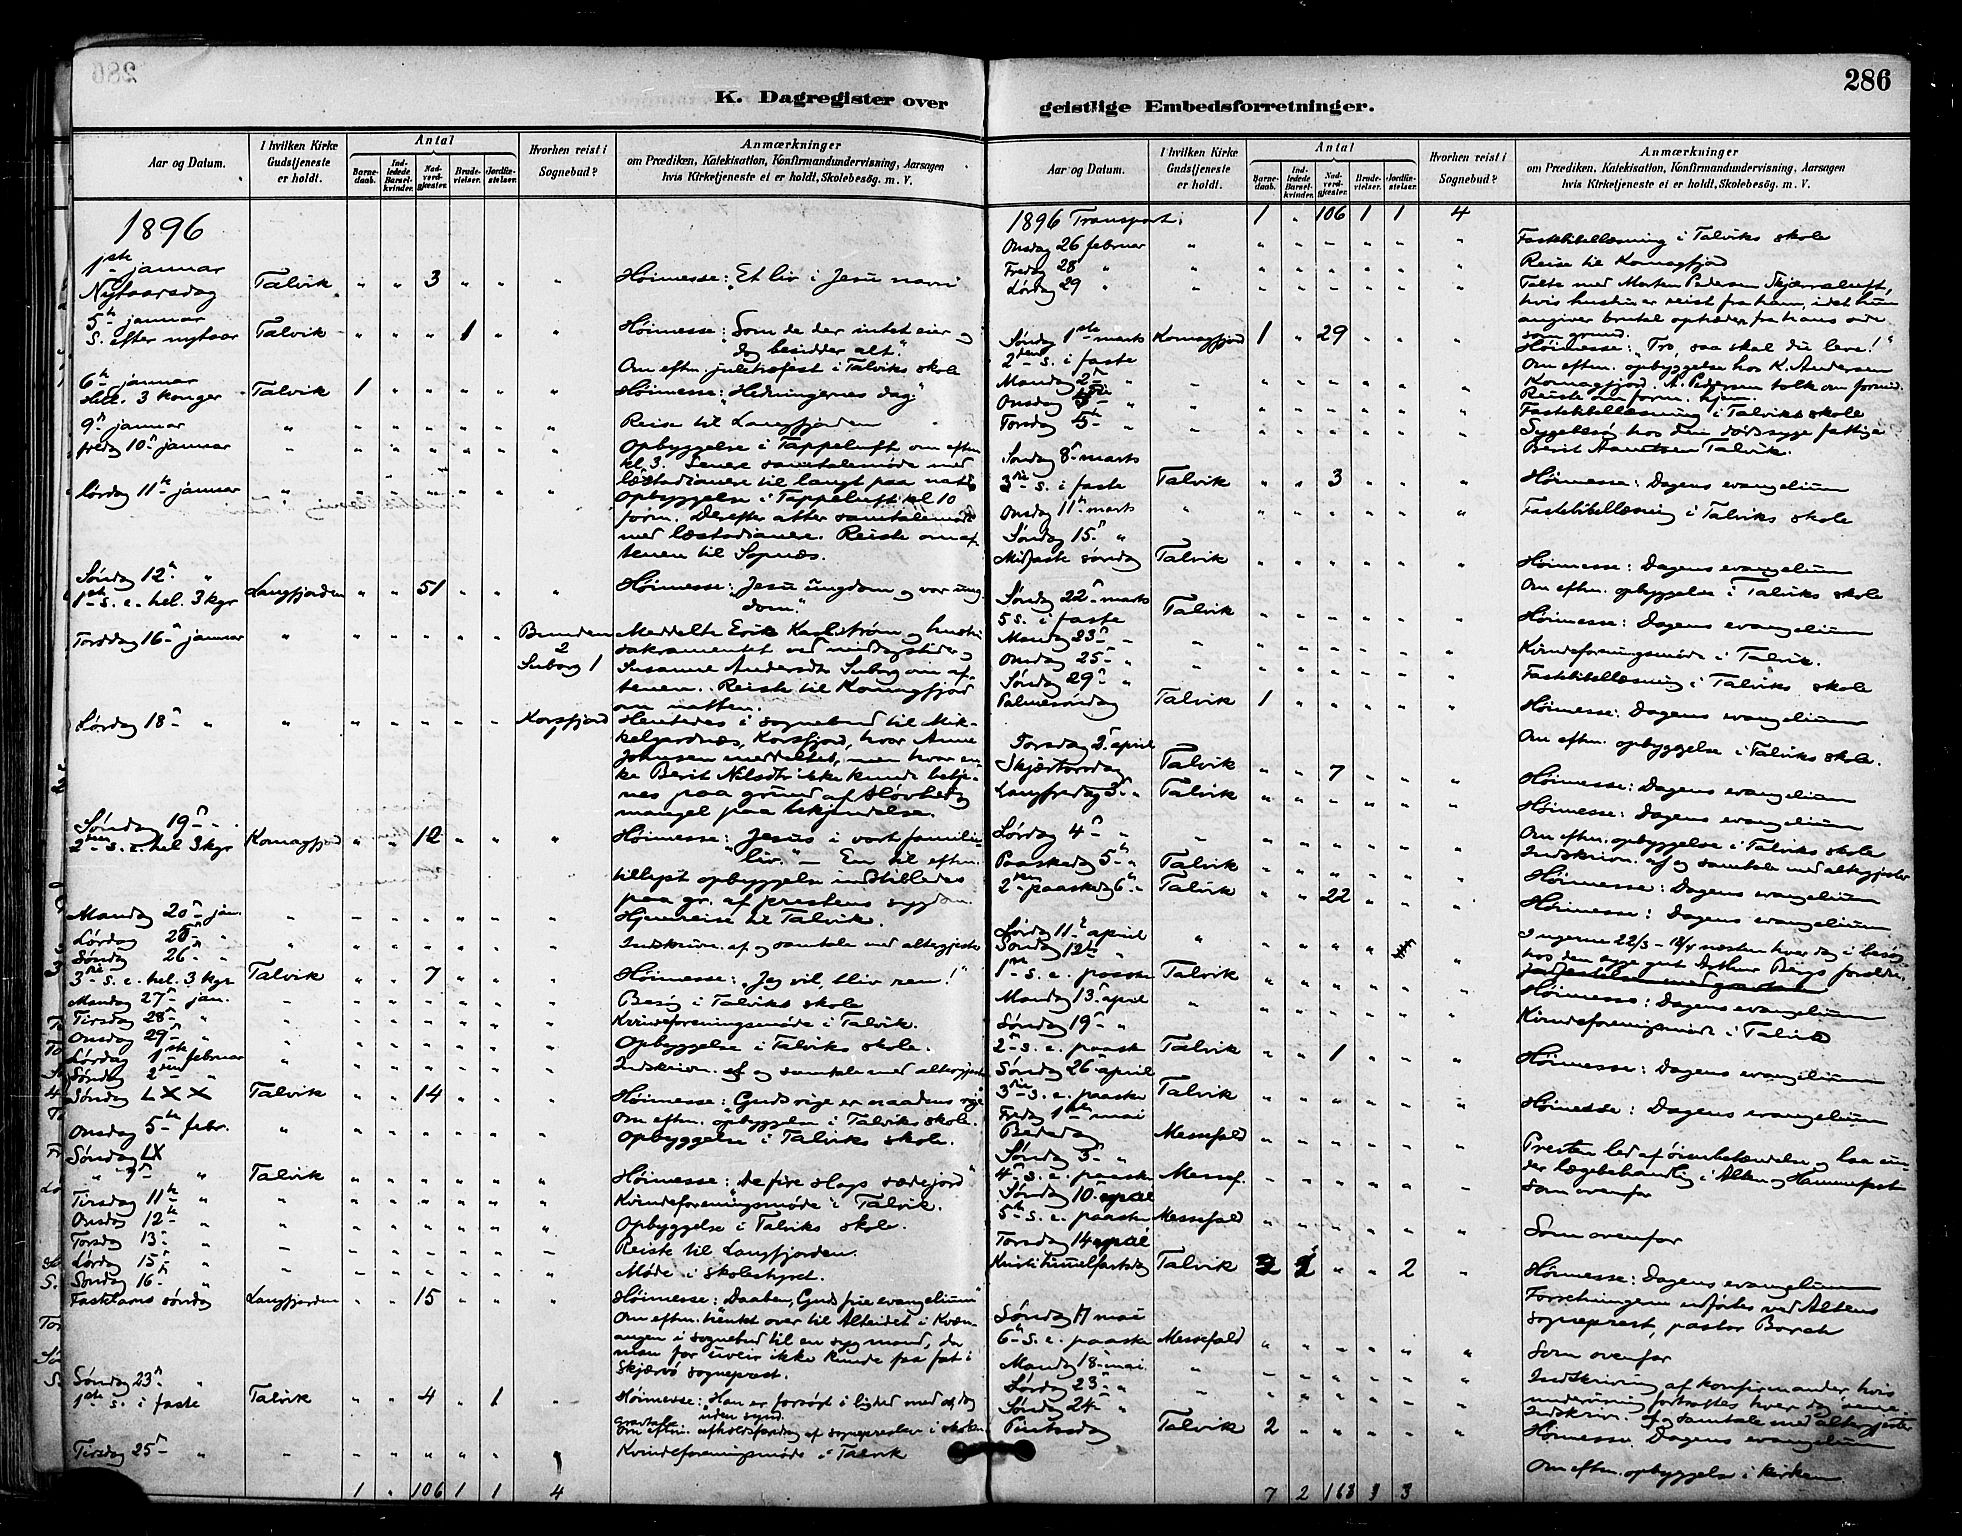 286
K. Dagregister over geistlige Embedsforretninger.
Aar og Datum. I hvilken Kirke Gudstjeneste er holdt. Antal Barnedaab. Indledede Barselkvinder. Nadverdgjester. Brudevielser. Jordfæstelser. Hvorhen reist i Sognebud? Anmærkninger om Prædiken, Katekisation, Konfirmandundervisning, Aarsagen hvis Kirketjeneste ei er holdt, Skolebesøg. m. V.
1896
1ste januar
Nytaarsdag Talvik " " 3 " " " Høimesse: "Et liv i Jesu navn
5te januar
S. efter nytaar Talvik " " " 1 " " Høimesse: "Som de der intet eier og
dog besidder alt."
Om eftm. juletræfest i Talviks skole
6te januar
Hel. 3 konger Talvik 1 " " " " " Høimesse: "Hedningernes dag"
9de januar " " " " " " " Reise til Langfjorden
fredag 10de januar " " " " " " " Opbyggelse i Tappeluft om eftm
kl. 3. Senere samtalemøde med
læstadianere til langt paa natt.
Lørdag 11te januar " " " " " " Opbyggelse i Tappeluft kl 10
form. Derefter atter samtalemøde
med læstadianere. Reiste om af-
tenen til Sopnæs.
Søndag 12te "
1ste s. e. hel. 3 kgr Langfjorden " " 51 " " " Høimesse: "Jesu ungdom og vor ung-
dom."
Torsdag 16de januar " " " " " " Bunden 2 Meddelte Erik Karlstrøm og hustru
sakramentet ved middagstider og
Suborg 1 Susanne Andersdt Suborg om af-
tenen. Reiste til Komagfjord
om natten.
Lørdag 18de " " " " " " " Korsfjord Hentedes i sognebud til Mik-
kelgardnæs, Korsfjord, hvor Anne
Johnsen meddeltes, men hvor en-
ke Berit Nilsdtr ikke kunde betje-
nes paa grund af sløvhed og
mangel paa bekjendelse.
Søndag 19de "
2den s. e. hel 3 kgr Komagfjord " " 12 " " " Høimesse: "Jesus i vort familie-
liv." – En til eftm.
tillyst opbyggelse indstilledes
paa gr. af prestens sygdom
Mandag 20de jan. " " " " " " " Hjemreise til Talvik.
Lørdag 25de " " " " " " " " Indskrivn. af og samtale med altergjester
Søndag 26de "
3die s. e. hel. 3 kgr Talvik " " 7 " " " Høimesse: "Jeg vil, bliv ren!"
Mandag 27de jan. " " " " " " " Besøg i Talviks skole
Tirsdag 28de " " " " " " " " Kvindeforeningsmøde i Talvik.
Onsdag 29de " " " " " " " " Opbyggelse i Talviks skole.
Lørdag 1ste februar " " " " " " " Indskrivn. af og samtale med altergjester
Søndag 2den "
Søndag LXX Talvik " " 14 " " " Høimesse: "Guds rige er naadens rige"
Om eftm. opbyggelse i Talviks skole.
Onsdag 5te febr. " " " " " " " Opbyggelse i Talviks skole.
Søndag LX
" 9de " Talvik " " " " " " Høimesse: "De fire slags sædejord"
Tirsdag 11te " " " " " " " " Kvindeforeningsmøde i Talvik.
Onsdag 12te " " " " " " " " Opbyggelse i Talviks skole.
Torsdag 13de " – – – – – – – Reiste til Langfjorden.
Lørdag 15de " – – – – – – " Møde i skolestyret.
Søndag 16de "
Fastelavns søndag Langfjorden " " 15 " " " Høimesse: "Daaben, Guds frie evangelium"
Om eftm. hentet over til Alteidet i Kvæn-
angen i sognebud til en syg mand, da
man for uveir ikke kunde faa fat i
Skjærvø sogneprest.
Søndag 23de "
1ste s. i faste Talvik " " 4 " 1 " Høimesse: "Han er forsøgt i lighed med os, dog
uden synd.
Gravtale. Om eftm. afholdsforedrag af sognepresten i skolen
Tirsdag 25de " " " " " " " " Kvindeforeningsmøde i Talvik
1 " 106 1 1 4
Aar og Datum. I hvilken Kirke Gudstjeneste er holdt. Antal Barnedaab. Indledede Barselkvinder. Nadverdgjester. Brudevielser. Jordfæstelser. Hvorhen reist i Sognebud? Anmærkninger om Prædiken, Katekisation, Konfirmandundervisning, Aarsagen hvis Kirketjeneste ei er holdt, Skolebesøg. m. V.
1896 Transport: 1 " 106 1 1 4
Onsdag 26 februar " " " " " " " Fastebibellæsning i Talviks skole
Fredag 28 " " " " " " " " Reise til Komagfjord
Lørdag 29 " " " " " " " " Talte med Morten Pedersen Skjærsluft,
hvis hustru er reist fra ham, idet hun
angiver brutal optræden fra hans side
som grund.
Søndag 1ste marts
2den s. i faste Komagfjord 1 " 29 " " " Høimesse: "Tro, saa skal du leve!"
Om eftm. opbyggelse hos K. Andersen
Mandag 2den " " " " " " " " Komagfjord. A. Pedersen tolk om formid.
Reiste om form. hjem.
Onsdag 4de " " " " " " " " Fastebibellæsning i Talviks skole
Torsdag 5te " " " " " " " " Sygebesøg hos den dødssyge fattige
Berit Aamtsen Talvik.
Søndag 8de marts
3die s. i faste Talvik " " 3 " " " Høimesse: Dagens evangelium
Onsdag 11te marts " " " " " " " Fastebibellæsning i Talviks skole
Søndag 15de "
Midfaste søndag Talvik " " " " " " Høimesse: Dagens evangelium
Om eftm. opbyggelse i Talviks skole
Søndag 22de marts
5 s. i faste Talvik " " " " " " Høimesse: Dagens evangelium
Mandag 23de " " " " " " " " Kvindeforeningsmøde i Talvik.
Onsdag 25de " " " " " " " " Fastebibellæsning i Talviks skole
Søndag 29de "
Palmesøndag Talvik 1 " " " " " Høimesse: Dagens evangelium
Om eftm. opbyggelse i Talviks skole.
Torsdag 2 april
Skjærtorsdag Talvik " " 7 " " " Høimesse: Dagens evangelium
Langfredag 3die " Talvik " " " " " " Høimesse: Dagens evangelium
Om eftm. opbyggelse i Talviks skole
Lørdag 4de " " " " " " " " Indskrivn. af og samtale med altergjester
Paaskedag 5te " Talvik " " " " " " Høimesse: Dagens evangelium
2den paaskedag 6te " Talvik " " 22 " " " Høimesse: Dagens evangelium
Lørdag 11te april " " " " " I ugerne 22/3 – 12/4 næsten hver dag i besøg
hos den syge gut Arthur Bergs forældre,
Søndag 12te "
1ste s. e. paaske Talvik " " " " " " Høimesse: Dagens evangelium
Mandag 13de april " " " " " " " Kvindeforeningsmøde i Talvik
Søndag 19de "
2den s. e. paaske Talvik " " 1 " " " Høimesse: Dagens evangelium
Søndag 26de april
3die s. e. paaske Talvik " " " " " " Høimesse: Dagens evangelium
Fredag 1ste mai
Bededag Messefald " " " " " " Presten led af øienbetændelse og laa un-
der lægebehandling i Alten og Hammerfest
Søndag 3die "
4de s. e. paaske Messef. " " " " " " Som ovenfor
Søndag 10de
5te s. e. paaske Messefald " " " " " " Som ovenfor
Torsdag 14
Kristi himmelfartsdag Talvik 3 2 " " 2 " Høimesse: Dagens evangelium
Forretningerne udførtes ved Altens
sogneprest, pastor Borch
Søndag 17 mai
6te s. e. paaske Messefald " " " " " " Som ovenfor
Mandag 18de mai " " " " " " " Indskrivning af konfirmander, hvis
undervisning fortsattes hver dag
Lørdag 23de " " " " " " " " Indskrivn. af og samtale med altergjester
Søndag 24de "
Pintsedag Talvik 2 Høimesse. Dagens evangelium
Om eftm. opbyggelse i kirken
7 2 168 1 3